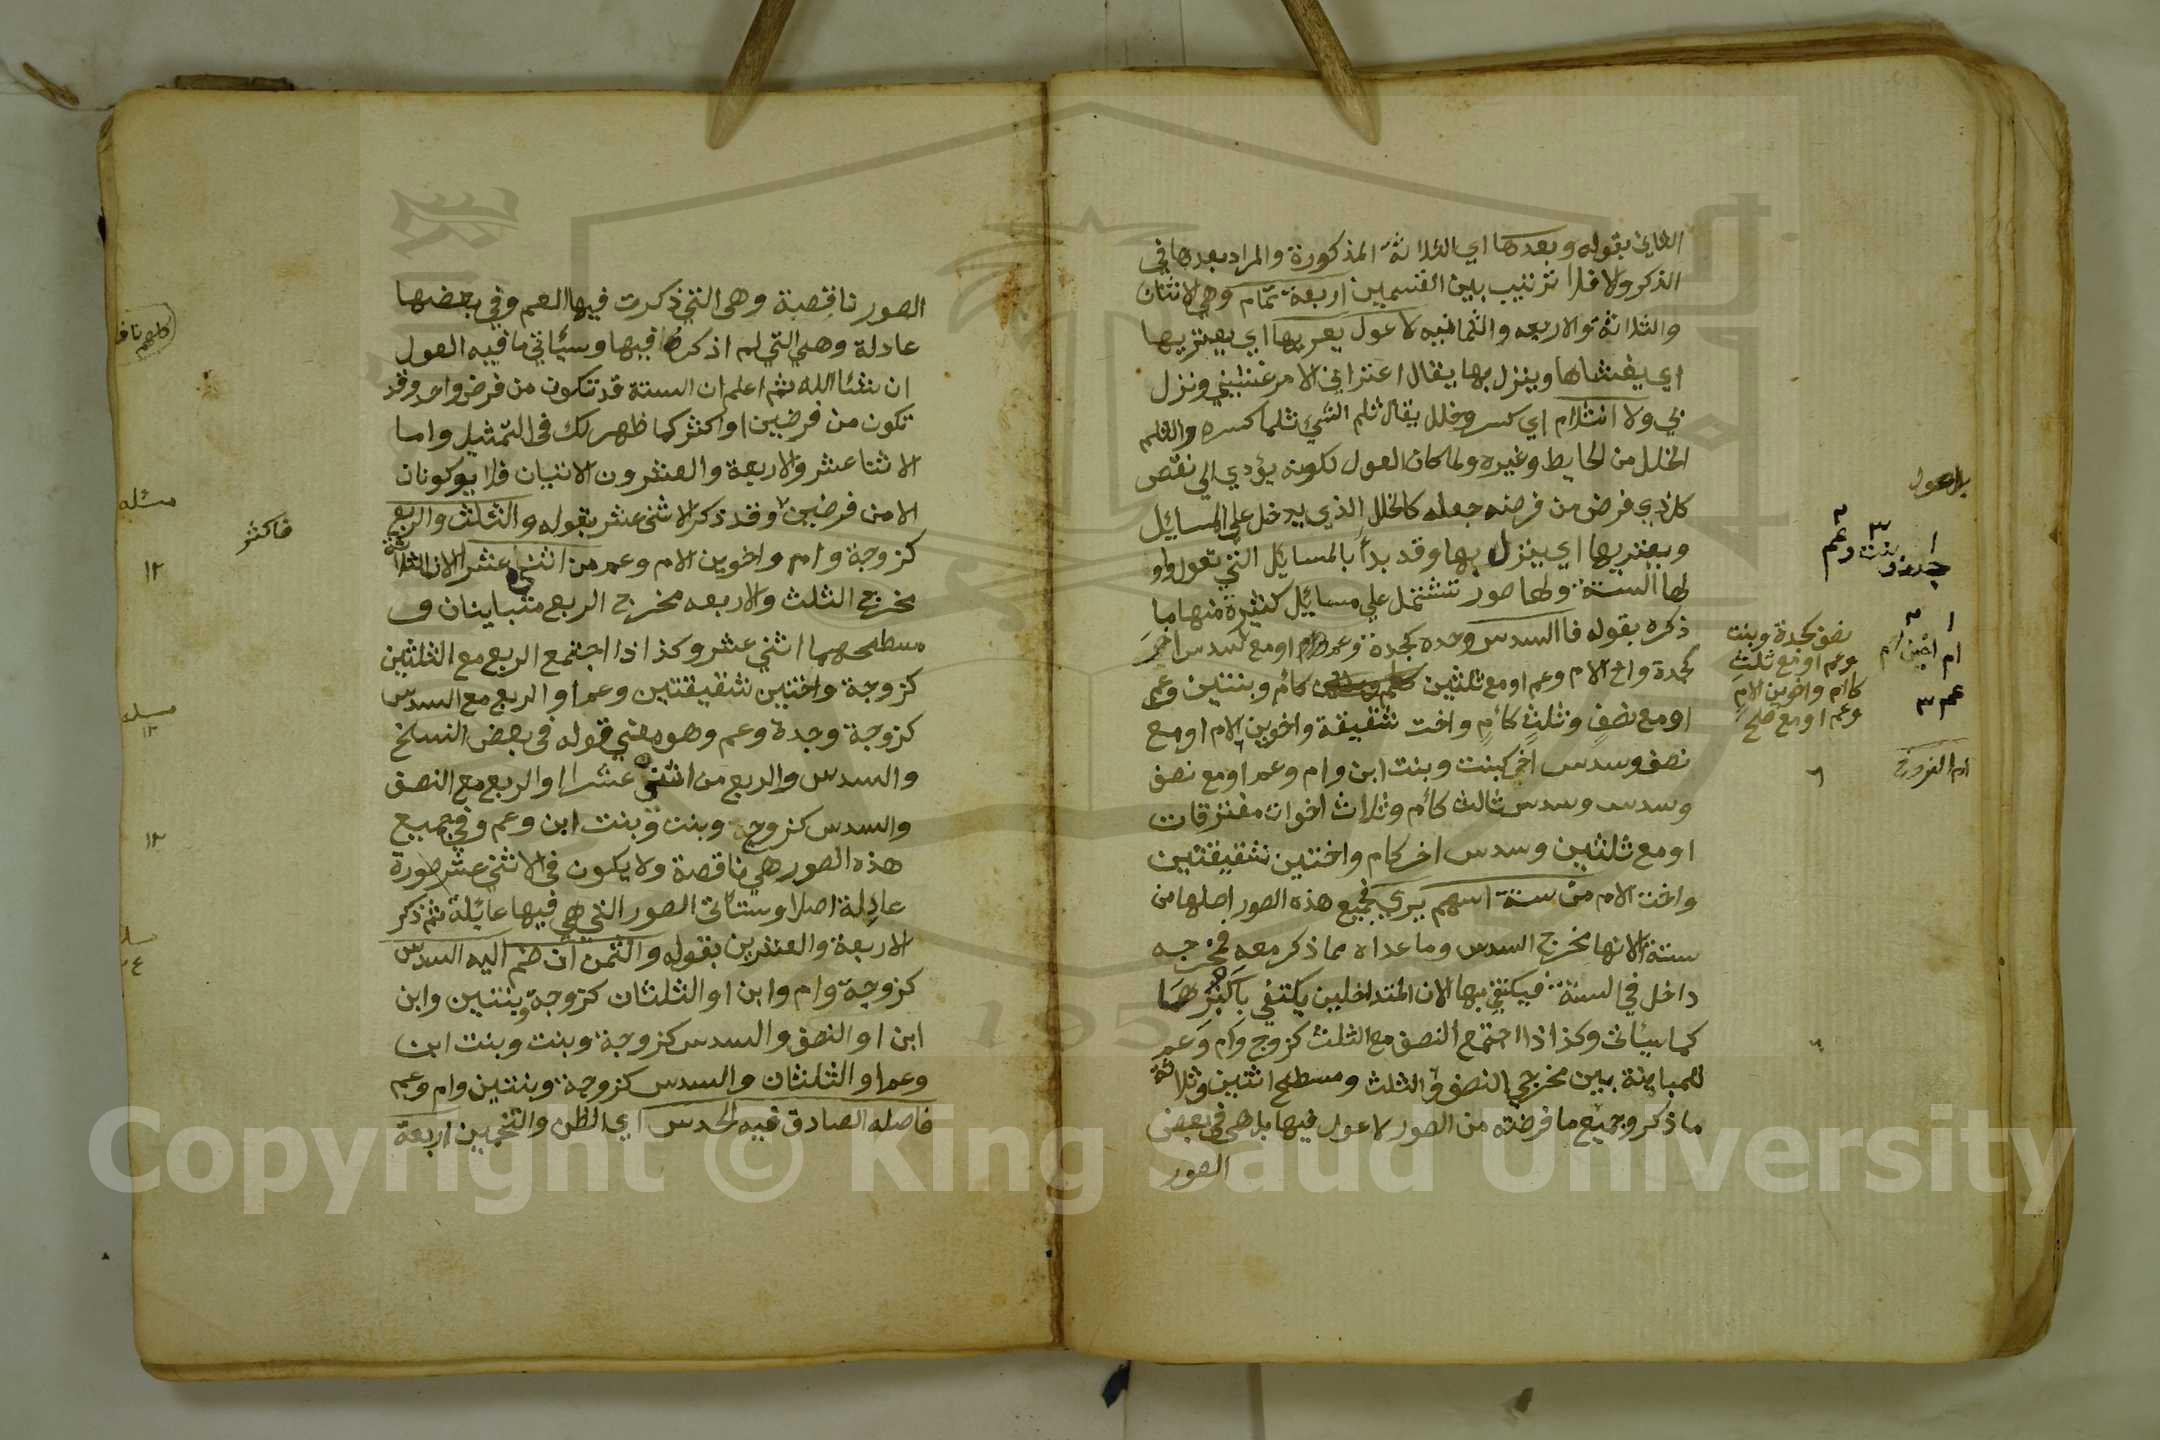 الثاني بقوله وبعدها اي الثلاثة المذكورة والمراد بعدها في
الذكر ولا فلا ترتيب بين القسمين اربعة تمام وهي الاثنان
والثلاثة والاربعه والثمانيه لا عول يعريها اي يعتريها
اي يغشاها وينزل بها يقال اعتراني الامر غشيني ونزل
بي ولا انثلام اي كسر وخلل يقال ثلم الشيء ثلما كسره والثلم
الخلل من الحايط وغيره ولما كان العول لكونه يؤدي الى نقص
كل ذي فرض من فرضه جعله كالخلل الذي يدخل على المسائل
ويعتريها اي ينزل بها وقد بدأ بالمسائل التي تعول واو
لها الستة ولها صور تشتمل علي مسائل كثيرة منها ما
ذكره بقوله فا السدس وحده كجدة وعم او مع سدس اخر
كجدة واخ لام وعم او مع ثلثين كام وبنتين وعم
او مع نصف وثلث كأم واخت شقيقة واخوين لام او مع
نصف وسدس اخر كبنت وبنت ابن وام وعم او مع نصف
وسدس وسدس ثالث كأم وثلاث اخوات مفترقات
او مع ثلثين وسدس اخر كام واختين شقيقتين
واخت لام من ستة اسهم يري فجميع هذه الصور اصلها من
ستة لانها مخرج السدس وما عداه مما ذكر معه فمخرجه
داخل في الستة فيكتفي بها لان المتداخلين يكتفي باكبرهما
كما سيأتي وكذا اذا اجتمع النصف مع الثلث كزوج وام وعم
للمباينة بين مخرجي النصف والثلث ومسطح اثنين وثلاثة
ما ذكر وجميع ما فرضته من الصور لا عول فيها بل هي في بعض
الصور
بالعول
جدة بنت وعم
ام اخين لام
عم ٣
نصف كجدة وبنت
وعم او مع ثلث
كام واخوين لام
وعم او مع
ام الفروخ
٦
٦
الصور ناقصة وهي التي ذكرت فيها العم وفي بعضها
عادلة وهي التي لم اذكره فيها وسيأتي ما فيه العول
ان شا الله ثم اعلم ان الستة قد تكون من فرض واحد وقد
تكون من فرضين او اكثر كما ظهر لك في التمثيل واما
الاثنا عشر والاربعة والعشرون الاثنيان فلا يوكونان
الا من فرضين وقد ذكر الاثني عشر بقوله والثلث والربع
كزوجة وام واخوين لام وعم من اثني عشر لان الثلاثة
مخرج الثلث والاربعه مخرج الربع متباينان و
مسطحهما اثني عشر وكذا اذا اجتمع الربع مع الثلثين
كزوجة واختين شقيقتين وعم او الربع مع السدس
كزوجة وجدة وعم وهو معني قوله في بعض النسخ
والسدس والربع من اثني عشرا او الربع مع النصف
والسدس كزوج وبنت وبنت ابن وعم وفي جميع
هذه الصور هي ناقصة ولا يكون في الاثني عشر صورة
عادلة اصلا وستأتي الصور التي هي فيها عائلة ثم ذكر
الاربعة والعشرين بقوله والثمن ان ضم اليه السدس
كزوجة وام وابن او الثلثان كزوجة وبنتين وابن
ابن او النصف والسدس كزوجة وبنت وبنت ابن
وعم او الثلثان والسدس كزوجة وبنتين وام وعم
فاصله الصادق فيه الحدس اي الظن والتخمين اربعة
فاكثر
مسئله
١٢
مسله
١٢
١٢
Copyright © King Saud University
1957